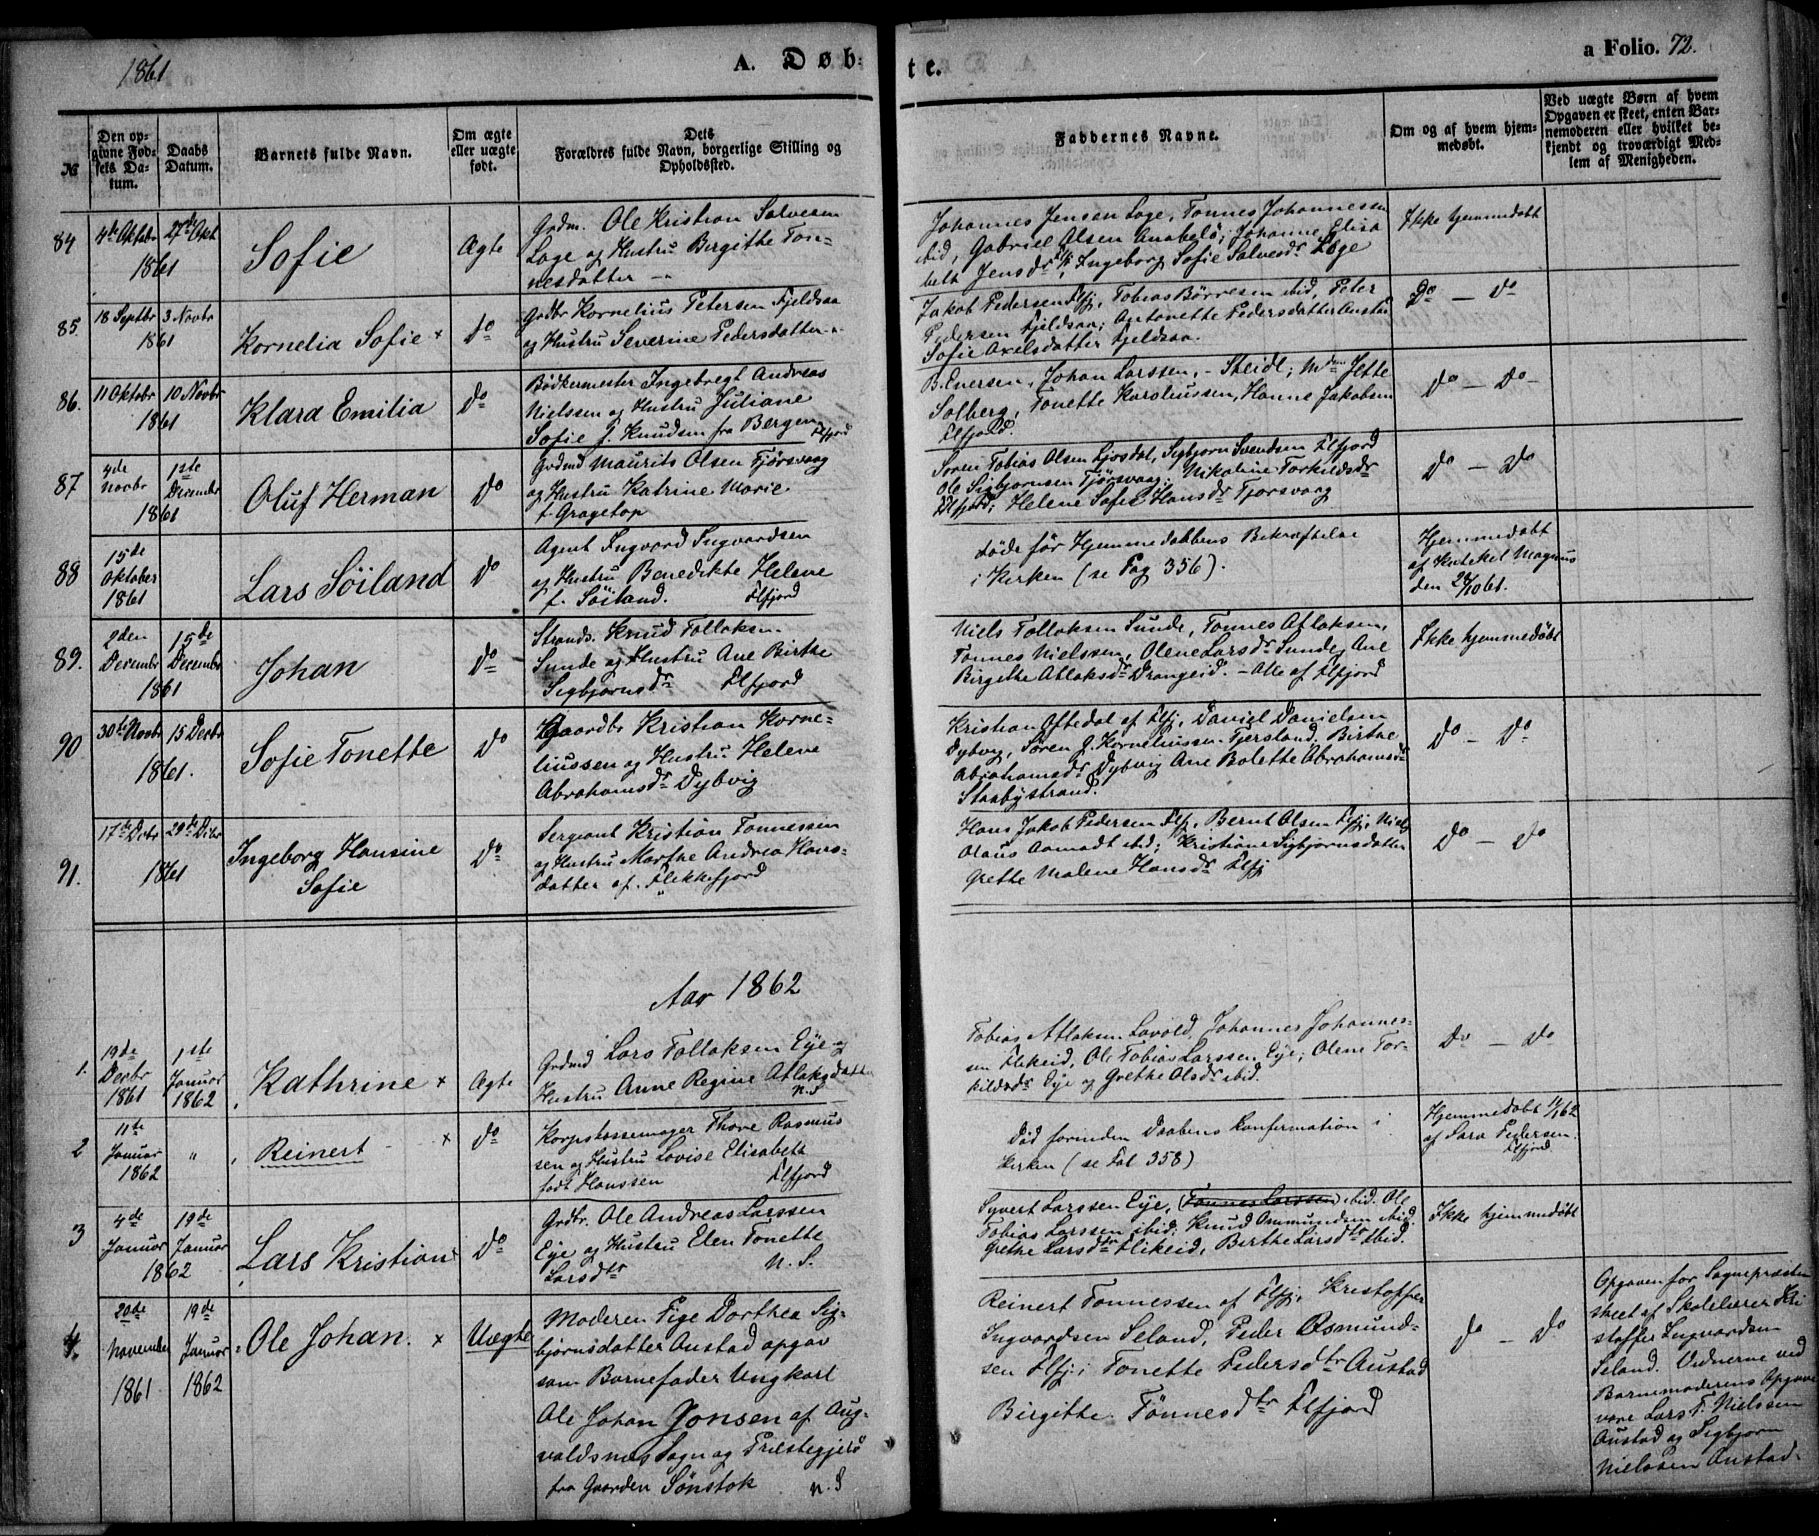 1861
A. Døb-
te.
a Folio. 72.
№
Den op-
givne Fød-
sels Da-
tum.
Daabs
Datum.
Barnets fulde Navn.
Om ægte
eller uægte
født.
Dets
Forældres fulde Navn, borgerlige Stilling og
Opholdssted.
Faddernes Navne.
Om og af hvem hjem-
medøbt.
Ved uægte Børn af hvem
Opgaven er skeet, enten Bar-
nemoderen eller hvilket be-
kjendt og troværdigt Med-
lem af Menigheden.
84
4de Oktobr
1861
27de Okt
Sofie
Ægte
Grdm. Ole Kristian Salvesen
Loge og Hustru Birgithe Ton-
nesdatter
Johannes Jensen Loge, Tonnes Johannessen
ibid, Gabriel Olsen Anabelø; Johanne Elisa
beth Jensdr, Ingeborg Sofie Salvesdr Loge
Ikke hjemmedøbt
85.
18 Septbr
1861
3 Novbr
Kornelia Sofie ×
do
Grdbr Kornelius Petersen Fjeldsaa
og Hustru Severine Pedersdatter
Jakob Pedersen Flfj, Tobias Börresen ibid, Peter
Pedersen Fjeldsaa; Antonette Pedersdatter Austad
Sofie Axelsdatter Fjeldsaa.
Do — do
86.
11 Oktobr
1861
10 Novbr
Klara Emilia
do
Bödkermester Ingebregt Andreas
Nielssen og Hustru Juliane
Sofie f. Knudsen fra Bergen
Flfjord
B. Enersen, Johan Larssen, - Steidl; Mdm Jette
Solberg, Tonette Karoliussen, Hanne Jakobsen
Flfjord.
do — Do
87
4de
Novbr
1861
1ste
Decembr
Oluf Herman
do
Grdmd Maurits Olsen Tjørsvaag
og Hustru Katrine Marie
f. Gragetop
Søren Tobias Olsen Ljosdal, Sigbjørn Svendsen Flfjord
Ole Sigbjørnsen Tjørsvaag; Nikoline Torkildsdr
Flfjord; Helene Sofie Hansdr Tjorsvaag
do — do
88
15de
Oktober
1861
Lars Söiland
do
Agent Ingvard Ingvardsen
og Hustru Benedikte Helene
f. Söiland. Flfjord
døde før Hjemmedaabens Bekræftelse
i Kirken (se Pag 356).
Hjemmedøbt
af Kateket Magnus
den 28/10 61.
89.
2den
Decembr
1861
15de
Decembr
Johan
do
Strands. Knud Tollaksen
Sunde og Hustru Ane Birthe
Sigbjørnsdr Flfjord
Niels Tollaksen Sunde, Tonnes Atlaksen,
Tonnes Nielssen, Olene Larsdr Sunde, Ane
Birgithe Atlaksdr Drangeid. - Alle af Flfjord
Ikke hjemmedøbt
90
30te Novbr
1861.
15 Decbr
Sofie Tonette
do
Gaardbr Kristian Korne-
liussen og Hustru Helene
Abrahamsdr Dybvig
Kristian Oftedal af Flfj, Daniel Danielsen
Dybvig, Søren J. Korneliussen Fjersland, Birthe
Abrahamsdr Dybvig Ane Bolette Abrahamsdr
Staabystrand.
do — do
91.
17de Decbr
1861
29de Decbr
Ingeborg Hansine
Sofie
do
Sergeant Kristian Tonnessen
og Hustru Marthe Andrea Hans-
datter af Flekkefjord
Hans Jakob Pedersen Flfj, Bernt Olsen Flfj, Niels
Olaus Aamodt ibid; Kristiane Sigbjørnsdatter
Grethe Malene Hansdr Flfj
do — do
Aar 1862
1.
19de
Decbr
1861
1ste
Januar
1862
Kathrine ×
Ægte
Grdmd Lars Tollaksen Eye og
Hustru Anne Regine Atlaksdatter
N. S
Tobias Atlaksen Lavold, Johannes Johannes-
sen Flikeid, Ole Tobias Larssen Eye; Olene Tor-
kildsdr Eye og Grethe Olsdr ibid.
Do — do
2
11te
Januar
1862
"
Reinert ×
do
Korpskassemager Thore Rasmus
sen og Hustru Lovise Elisabeth
født Hanssen Flfjord
Død forinden Daabens Konfirmation i
Kirken (se Fol 358)
Hjemmedøbt 14/1 62
af Sara Pedersen
Flfjord
3
4de
Januar
1862
19de
Januar
Lars Kristian
do
Grdbr. Ole Andreas Larssen
Eye og Hustru Elen Tonette
Larsdtr N. S.
Syvert Larssen Eye, (Tonnes Larssen) ibid. Ole
Tobias Larssen ibid, Knud Ommundsen ibid.
Grethe Larsdtr Flikeid, Birthe Larsdtr ibid.
Ikke hjemmedøbt
4.
20de
November
1861
19de
Januar
1862
Ole Johan. ×
Uægte
Moderen Pige Dorthea Sig-
bjørnsdatter Austad opgav
som Barnefader Ungkarl
Ole Johan Jonsen af Aug-
valdsnes Sogn og Præstegjeld
fra Gaarden Sönstok N. S
Reinert Tonnessen af Flfj, Kristoffer
Ingvardsen Seland, Peder Osmund-
sen Flfj; Tonette Pedersdtr Austad
Birgitte Tönnesdtr Flfjord
do — do
Opgaven for Sognepræsten
skeet af Skolelærer Kri
stoffer Ingvardsen
Seland. Vidnerne ved
Barnemoderens Opgave
vare Lars T. Nielssen
Austad og Sigbjørn
Nielssen Austad.